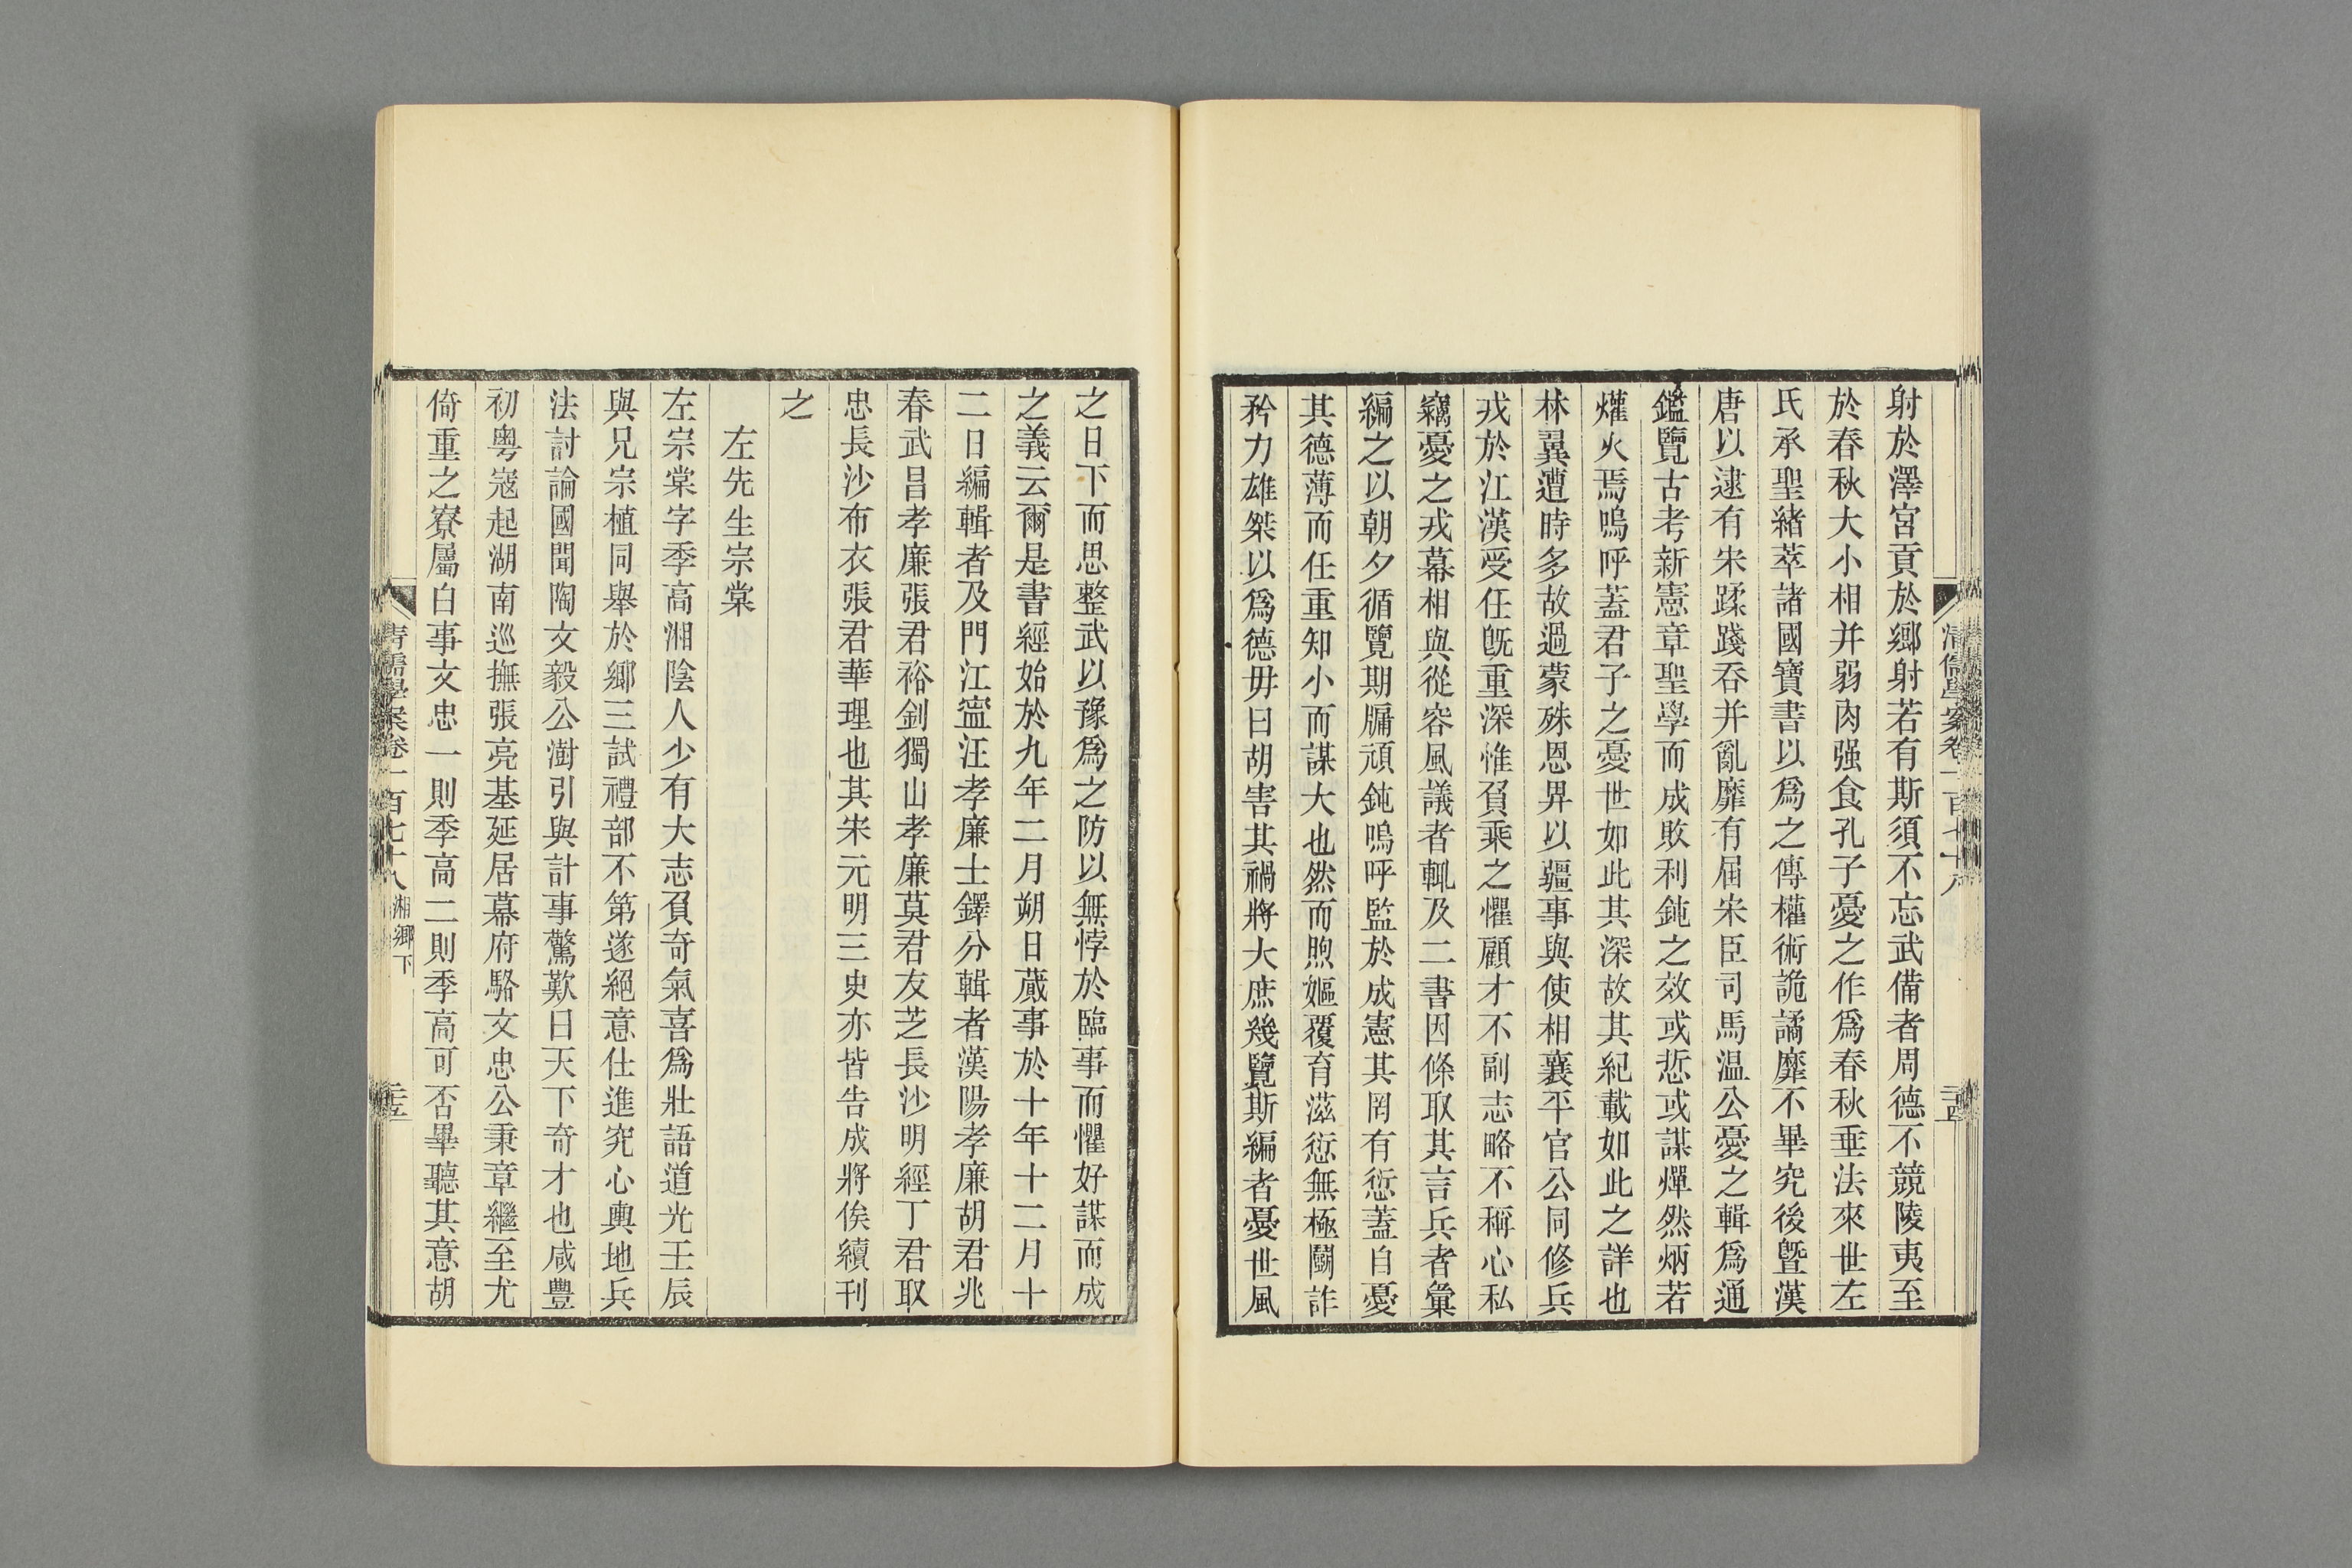 清儒學案卷一百七十八
射於澤宮貢於鄉射若有斯須不忘武備者周德不競陵夷至
於春秋大小相并弱肉强食孔子憂之作爲春秋垂法來世左
氏承聖緒萃諸國寶書以爲之傳權術詭譎靡不畢究後曁漢
唐以逮有宋蹂踐呑并亂靡有屆宋臣司馬温公憂之輯爲通
鑑覽古考新憲章聖學而成敗利鈍之效或悊或謀燀然炳若
爟火焉嗚呼蓋君子之憂世如此其深故其紀載如此之詳也
林翼遭時多故過蒙殊恩畀以疆事與使相襄平官公同修兵
戎於江漢受任旣重深惟負乘之懼顧才不副志略不稱心私
竊憂之戎幕相與從容風議者輒及二書因條取其言兵者彙
編之以朝夕循覽期牖頑鈍嗚呼監於成憲其罔有愆蓋自憂
其德薄而任重知小而謀大也然而煦嫗覆育滋愆無極鬬詐
矜力雄桀以爲德毋曰胡害其禍將大庶幾覽斯編者憂世風
之日下而思整武以豫爲之防以無悖於臨事而懼好謀而成
之義云爾是書經始於九年二月朔日蕆事於十年十二月十
二日編輯者及門江寍汪孝廉士鐸分輯者漢陽孝廉胡君兆
春武昌孝廉張君裕釗獨山孝廉莫君友芝長沙明經丁君取
忠長沙布衣張君華理也其宋元明三史亦皆告成將俟續刊
之
左先生宗棠
左宗棠字季高湘陰人少有大志負奇氣喜爲壯語道光壬辰
與兄宗植同舉於鄉三試禮部不第遂絕意仕進究心輿地兵
法討論國聞陶文毅公澍引與計事驚歎曰天下奇才也咸豐
初粵寇起湖南巡撫張亮基延居幕府駱文忠公秉章繼至尤
倚重之寮屬白事文忠一則季高二則季高可否畢聽其意胡
清儒學案卷一百七十八 湘鄉下